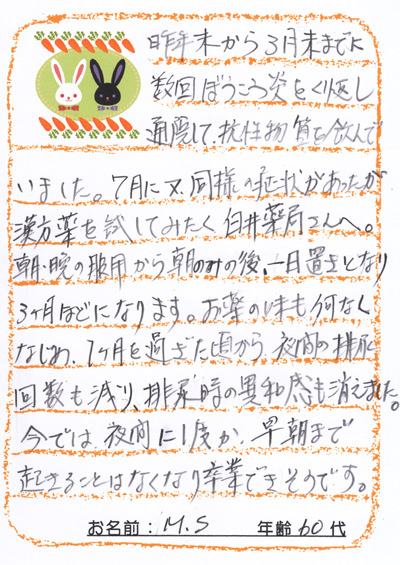 昨年末から3月末までに
数回ぼうこう炎をくり返し
通院して、抗性物質を飲んで
いました。7月に又、同様の症状があったが
漢方薬を試してみたく臼井薬局さんへ。
朝・晩の服用から朝のみの後、一日置きとなり
3ヶ月ほどになります。お薬の味も何なく
なじめ、1ヶ月を過ぎた頃から夜間の排尿
回数も減り、排尿時の異和感も消えました。
今では、夜間に1度か、早朝まで
起きることはなくなり卒業できそうです。
お名前：M.S 年齢60代